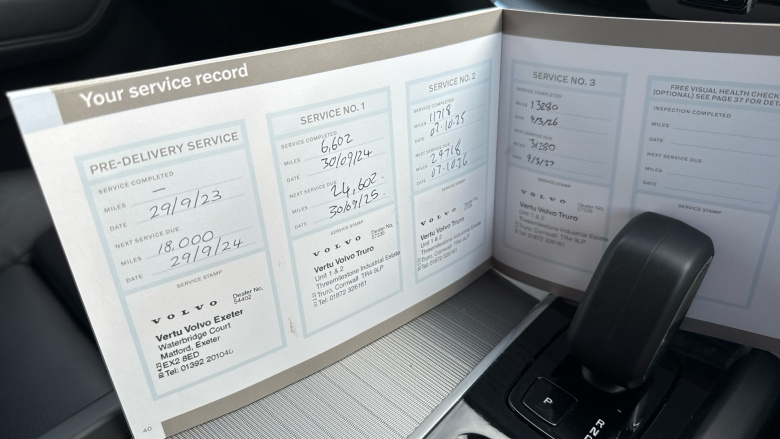 Your service record
PRE-DELIVERY SERVICE
SERVICE COMPLETED
MILES —
DATE 29/9/23
NEXT SERVICE DUE
MILES 18,000
DATE 29/9/24
SERVICE STAMP
VOLVO
Dealer No.
54402
Vertu Volvo Exeter
Waterbridge Court
Matford, Exeter
EX2 8ED
Tel: 01392 201040
40
SERVICE NO. 1
SERVICE COMPLETED
MILES 6,602
DATE 30/09/24
NEXT SERVICE DUE
MILES 24,602
DATE 30/09/25
SERVICE STAMP
VOLVO
Dealer No.
Vertu Volvo Truro
Unit 1 & 2
Threemilestone Industrial Estate
Truro, Cornwall TR4 9LP
Tel: 01872 326161
SERVICE NO. 2
SERVICE COMPLETED
MILES 11718
DATE 07.10.25
NEXT SERVICE DUE
MILES 29718
DATE 07.10.26
SERVICE STAMP
VOLVO
Dealer No.
Vertu Volvo Truro
Unit 1 & 2
Threemilestone Industrial Estate
Truro, Cornwall TR4 9LP
Tel: 01872 326161
SERVICE NO. 3
SERVICE COMPLETED
MILES 13280
DATE 9/3/26
NEXT SERVICE DUE
MILES 31280
DATE 9/3/27
SERVICE STAMP
VOLVO
Dealer No.
Vertu Volvo Truro
Unit 1 & 2
Threemilestone Industrial Estate
Truro, Cornwall TR4 9LP
Tel: 01872 326161
FREE VISUAL HEALTH CHECK
(OPTIONAL) SEE PAGE 37 FOR
INSPECTION COMPLETED
MILES
DATE
NEXT SERVICE DUE
MILES
DATE
SERVICE STAMP
P
R
N